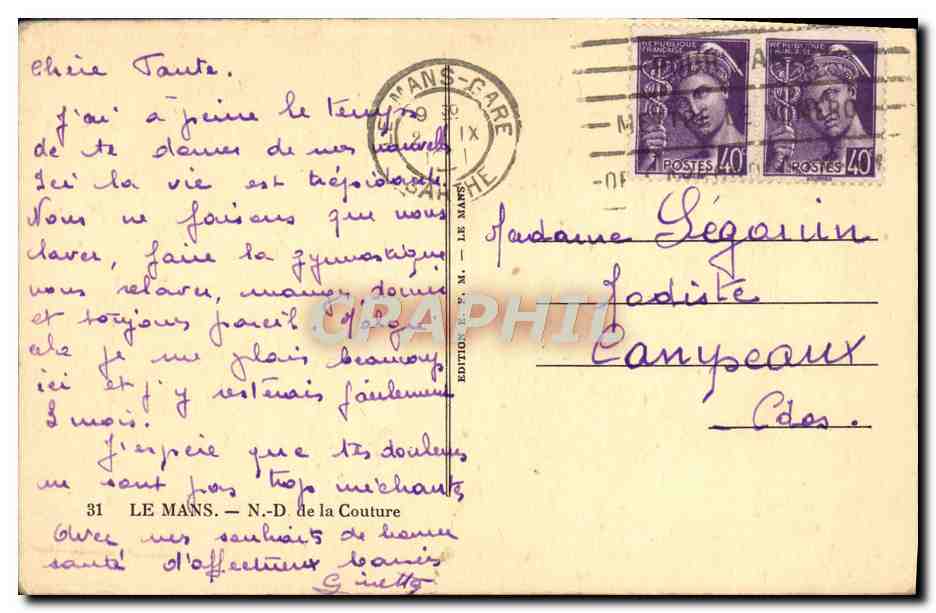 Chère Tante.
J'ai à peine le temps
de te donner de mes nouvels
Ici la vie est trépidante
Nous ne faisons que nous
laver, faire la gymnastique
nous relaver, manger, dormir
et toujours pareil. Malgré
cela je me plais beaucoup
ici et j'y resterais facilement
3 mois.
J'espère que tes douleurs
ne sont pas trop méchantes
31 LE MANS. — N.-D. de la Couture
Avec mes souhaits de bonne
santé d'affectueux baisers
Ginette
EDITION E. F. M. — LE MANS
MANS-GARE
9 30
2 IX
SARTHE
REPUBLIQUE FRANÇAISE
POSTES 40
REPUBLIQUE FRANÇAISE
POSTES 40
Madame Ségouin
Modiste
Campeaux
Cdos.
CRAPHIL